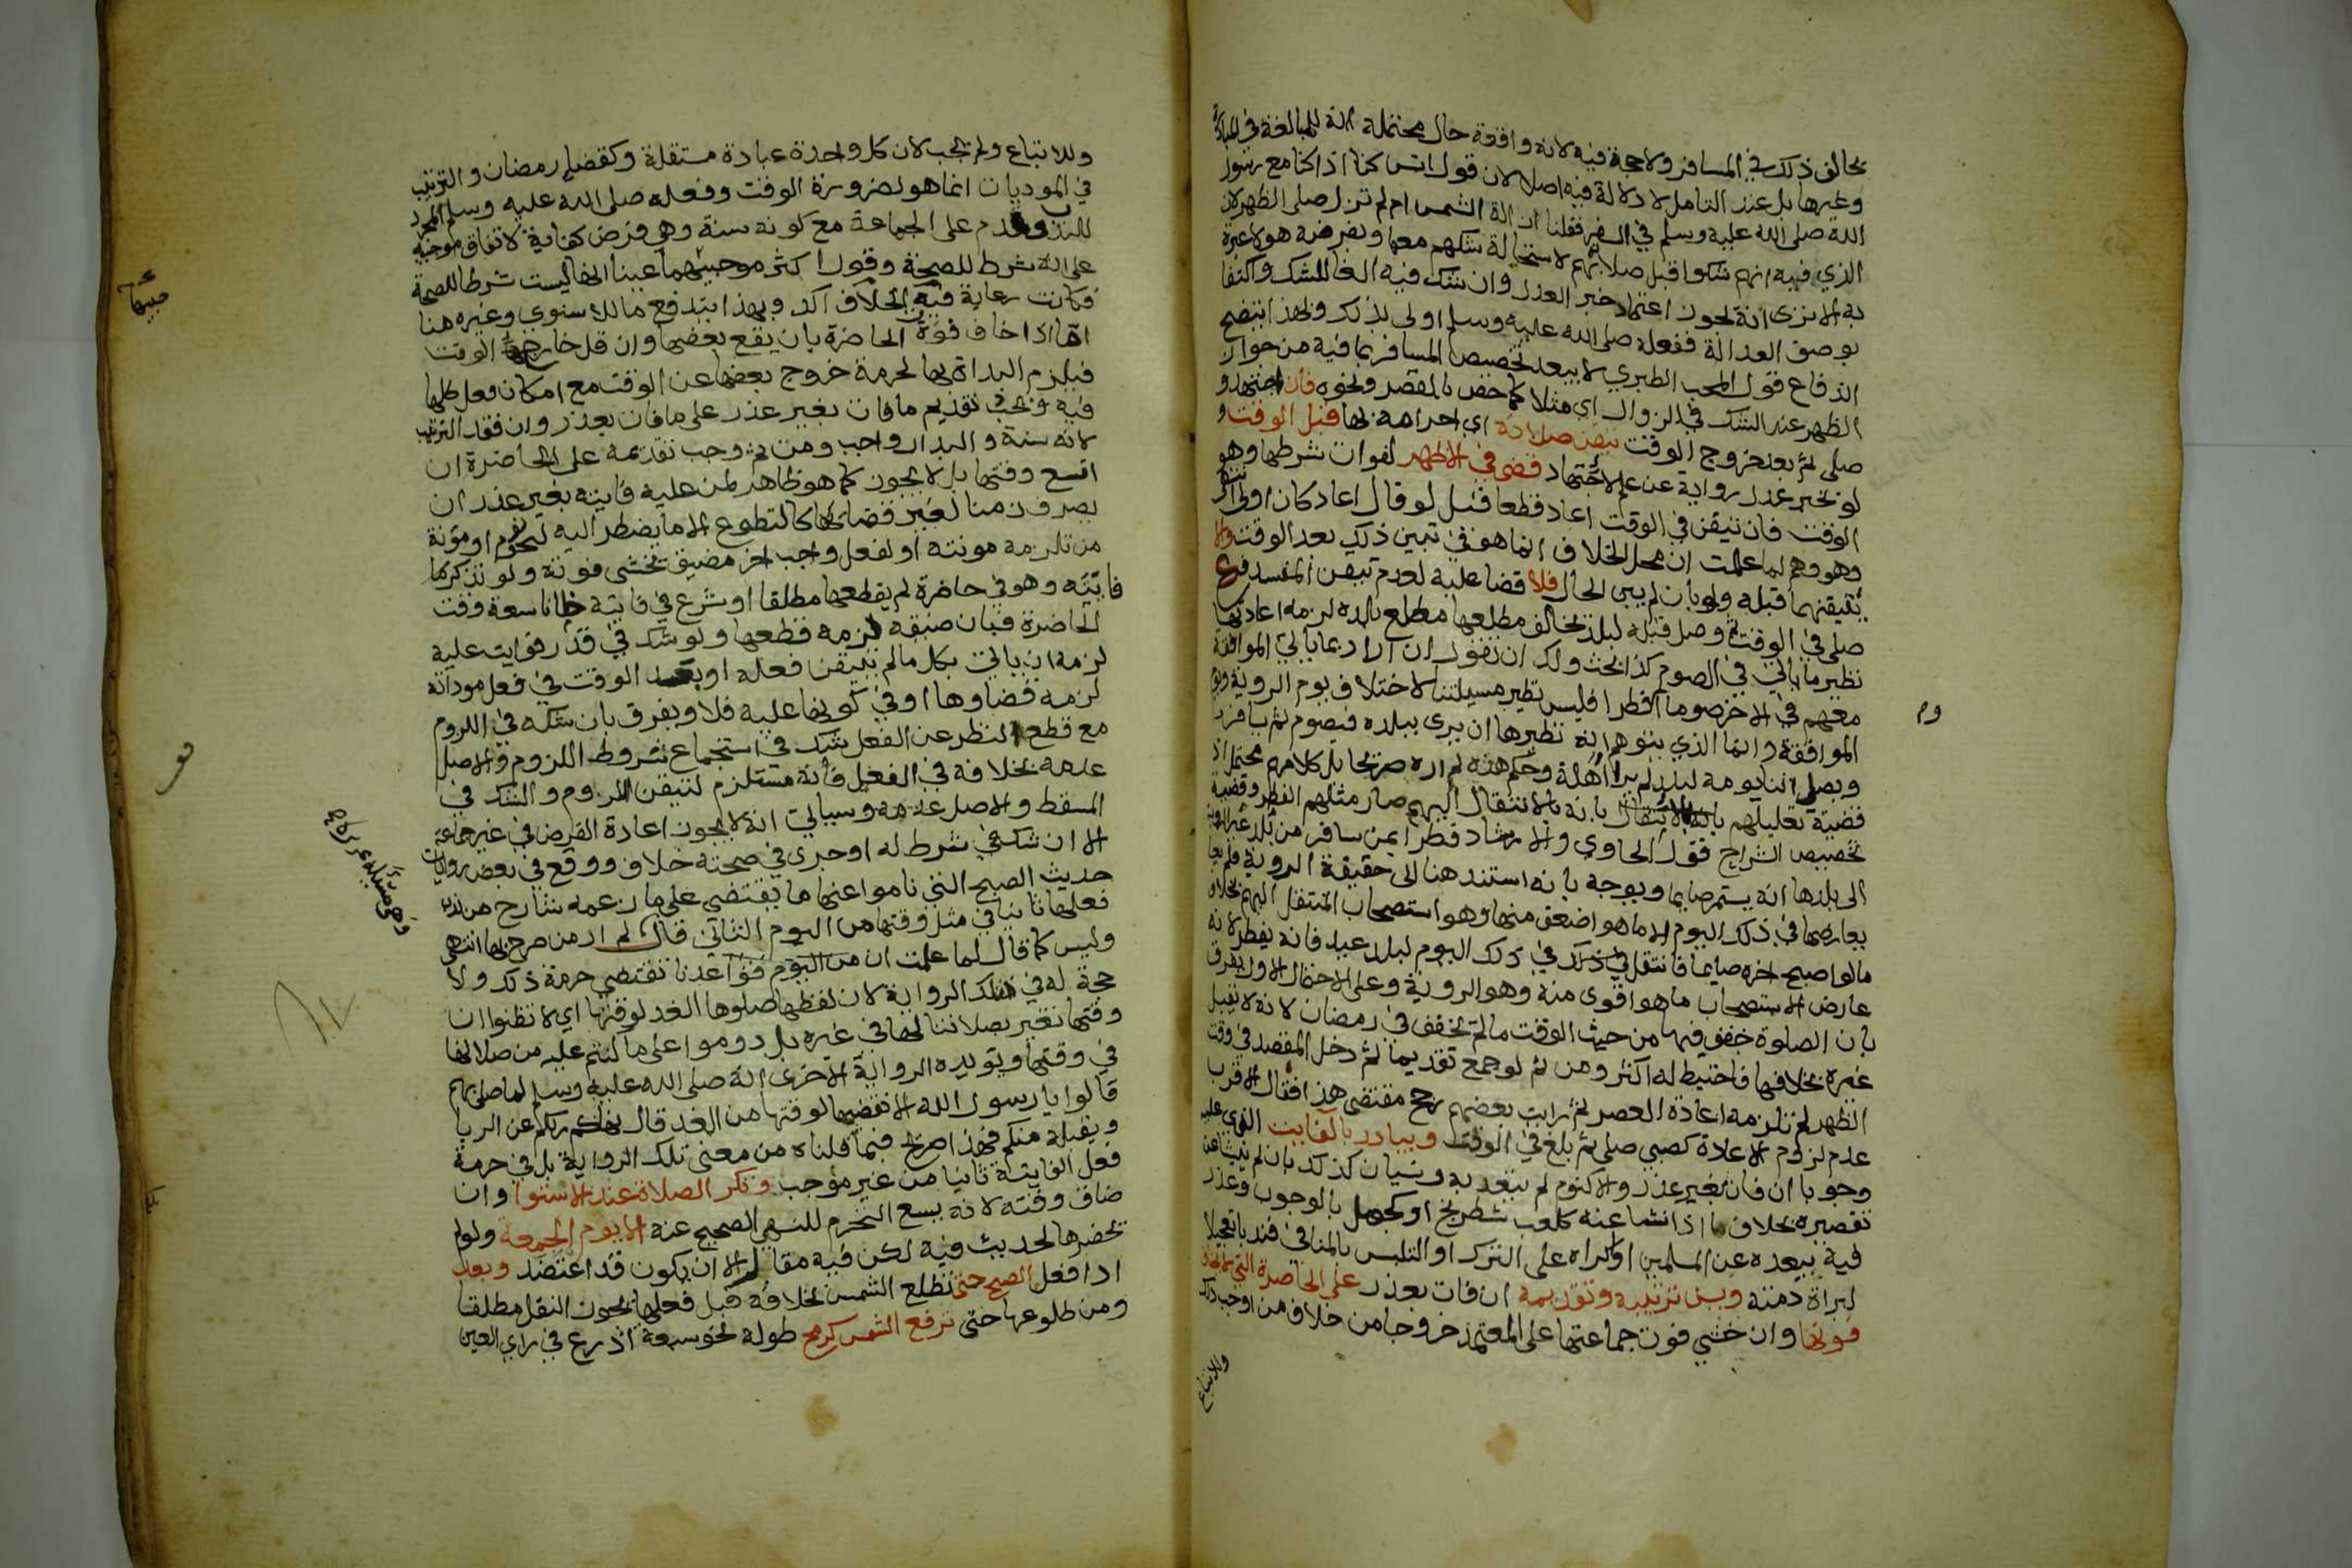 يخالف ذلك في المسافر ولا حجة فيه لانه واقعة حال محتملة انه للمبالغة في المبادرة
وغيرها بل عند التامل لا دلالة فيه اصلا لان قول انس كنا اذا كنا مع رسول
الله صلى الله عليه وسلم في السفر فقلنا ازالت الشمس ام لم تزل صلى الظهر لان
الذي فيه انهم شكوا قبل صلاتهم لاستحالة شكهم معها وبفرضه هو لا عبرة
به الا ترى انه يجوز اعتماد خبر العدل وان شك فيه الغا للشك واكتفا
بوصف العدالة ففعله صلى الله عليه وسلم اولى بذلك وبهذا يتضح
اندفاع قول المحب الطبري لا يبعد تخصيص المسافر بما فيه من جواز
الظهر عند الشك في الزوال اي مثلا كما خص بالقصر ونحوه فان اجتهد و
صلى ثم بعد خروج الوقت تيقن صلاته اي احرامه بها قبل الوقت و
لو بخبر عدل رواية عن علم لا اجتهاد قضى في الاظهر لفوات شرطها وهو
الوقت فان تيقن في الوقت اعاد قطعا قيل لو قال اعاد كان اولى
وهو وهم لما علمت ان محل الخلاف انما هو في تبين ذلك بعد الوقت والا
يتيقنهما قبله ولو بان لم يبن الحال فلا قضا عليه لعدم تيقن المفسد فرع
صلى في الوقت ثم وصل قبله لبلد يخالف مطلعها مطلع بلده لزمه اعادتها
نظير ما ياتي في الصوم كذا بحث ولك ان تقول ان اراد بما ياتي الموافقة
معهم في الاخر صوما او فطرا فليس نظير مسيلتنا لاختلاف يوم الروية ويوم
الموافقة وانما الذي يتوهم انه نظيرها ان يرى ببلده فيصوم ثم يسافر
ويصل اثنا يومه لبلد لم ير اهله وحكم هذه لم اره صريحا بل كلامهم محتمل اذ
قضية تعليلهم بانه بالانتقال اليهم صار مثلهم الفطر وقضية
تخصيص الشراح قول الحاوي والارشاد فطرا بمن سافر من بلد
الى بلدها انه يستمر صايما ويوجه بانه استند هنا الى حقيقة الروية فلم
يعارضها في ذلك اليوم الا ما هو اضعف منها وهو استصحاب المنتقل اليهم بخلاف
ما لو اصبح اخره صايما فانتقل في ذلك اليوم لبلد عيد فانه يفطر لانه
عارض الاستصحاب ما هو اقوى منه وهو الروية وعلى الاحتمال الاول يفرق
بان الصلوة خفف فيها من حيث الوقت ما لم يخفف في رمضان لانه لا يقبل
غيره بخلافها فاحتيط له اكثر ومن ثم لو جمع تقديما ثم دخل المقصد في وقت
الظهر لم تلزمه اعادة العصر ثم رايت بعضهم رجح مقتضى هذا فقال الاقرب
عدم لزوم الاعادة كصبي صلى ثم بلغ في الوقت ويبادر بالفايت الذي عليه
وجوبا ان فات بغير عذر والا كنوم لم يتعد به ونسيان كذلك بان لم ينشا عن
تقصيره بخلاف ما اذا نشا عنه كلعب شطرنج او كجهل بالوجوب وعذر
فيه ببعده عن المسلمين او اكراه على الترك او التلبس بالمنافي فندبا تعجيلا
لبراة ذمته ويسن ترتيبه وتقديمه ان فات بعذر على الحاضرة التي لا يخاف
فوتها وان خشي فوت جماعتها على المعتمد خروجا من خلاف من اوجب ذلك
وللاتباع
وللاتباع ولم يجب لان كل واحدة عبادة مستقلة وكقضا رمضان والترتيب
في الموديات انما هو لضرورة الوقت وفعله صلى الله عليه وسلم المجرد
للندب وقدم على الجماعة مع كونه سنة وهي فرض كفاية لاتفاق موجبيه
على انه شرط للصحة وقول اكثر موجبيها عينا انها ليست شرطا للصحة
فكانت رعاية فيه الخلاف اكد وبهذا يندفع ما للاسنوي وغيره هنا
اما اذا خاف فوت الحاضرة بان يقع بعضها وان قل خارج الوقت
فيلزم البداة بها لحرمة خروج بعضها عن الوقت مع امكان فعل كلها
فيه ويجب تقديم ما فات بغير عذر على ما فات بعذر وان فقد الترتيب
لانه سنة والبدار واجب ومن ثم وجب تقديمه على الحاضرة ان
اتسع وقتها بل لا يجوز كما هو ظاهر لمن عليه فايتة بغير عذر ان
يصرف زمنا لغير قضايها كالتطوع الا ما يضطر اليه لنحو نوم او مؤنة
من تلزمه مونته او لفعل واجب اخر مضيق يخشى فوته ولو تذكرها
فايتة وهو في حاضرة لم يقطعها مطلقا او شرع في فايتة ظانا سعة وقت
الحاضرة فبان ضيقه لزمه قطعها ولو شك في قدر فوايت عليه
لزمه ان ياتي بكل ما لم يتيقن فعله او بعد الوقت في فعل موداته
لزمه قضاوها او في كونها عليه فلا ويفرق بان شكه في اللزوم
مع قطع النظر عن الفعل شك في استجماع شروط اللزوم والاصل
عدمه بخلافه في الفعل فانه مستلزم لتيقن اللزوم والشك في
المسقط والاصل عدمه وسياتي انه لا يجوز اعادة الفرض في غير جماعة
الا ان شك في شرط له او جرى في صحته خلاف ووقع في بعض روايات
حديث الصبح التي ناموا عنها ما يقتضي على ما زعمه شارح من ندب
فعلها ثانيا في مثل وقتها من اليوم الثاني قال لم ار من صرح بها انتهى
وليس كما قال لما علمت ان من اليوم فقواعدنا تقتضي حرمة ذلك ولا
حجة له في تلك الرواية لان لفظها صلوها الغد لوقتها اي لا تظنوا ان
وقتها تغير بصلاتنا لها في غيره بل دوموا على ما كنتم عليه من صلاتها
في وقتها ويويده الرواية الاخرى انه صلى الله عليه وسلم لما صلى بهم
قالوا يا رسول الله الا نقضيها لوقتها من الغد قال نهاكم ربكم عن الربا
ويقبله منكم فهذا صريح فيما قلناه من معنى تلك الرواية بل في حرمة
فعل الفايتة ثانيا من غير موجب وتكره الصلاة عند الاستوا وان
ضاق وقته لانه يسع التحرم للنهي الصحيح عنه الا يوم الجمعة ولو لم
يحضرها لحديث فيه لكن فيه مقال الا ان يكون قد اعتضد وبعد
ادا فعل الصبح حتى تطلع الشمس بخلافه قبل فعلها يجوز النفل مطلقا
ومن طلوعها حتى ترفع الشمس كرمح طوله نحو سبعة اذرع في راي العين